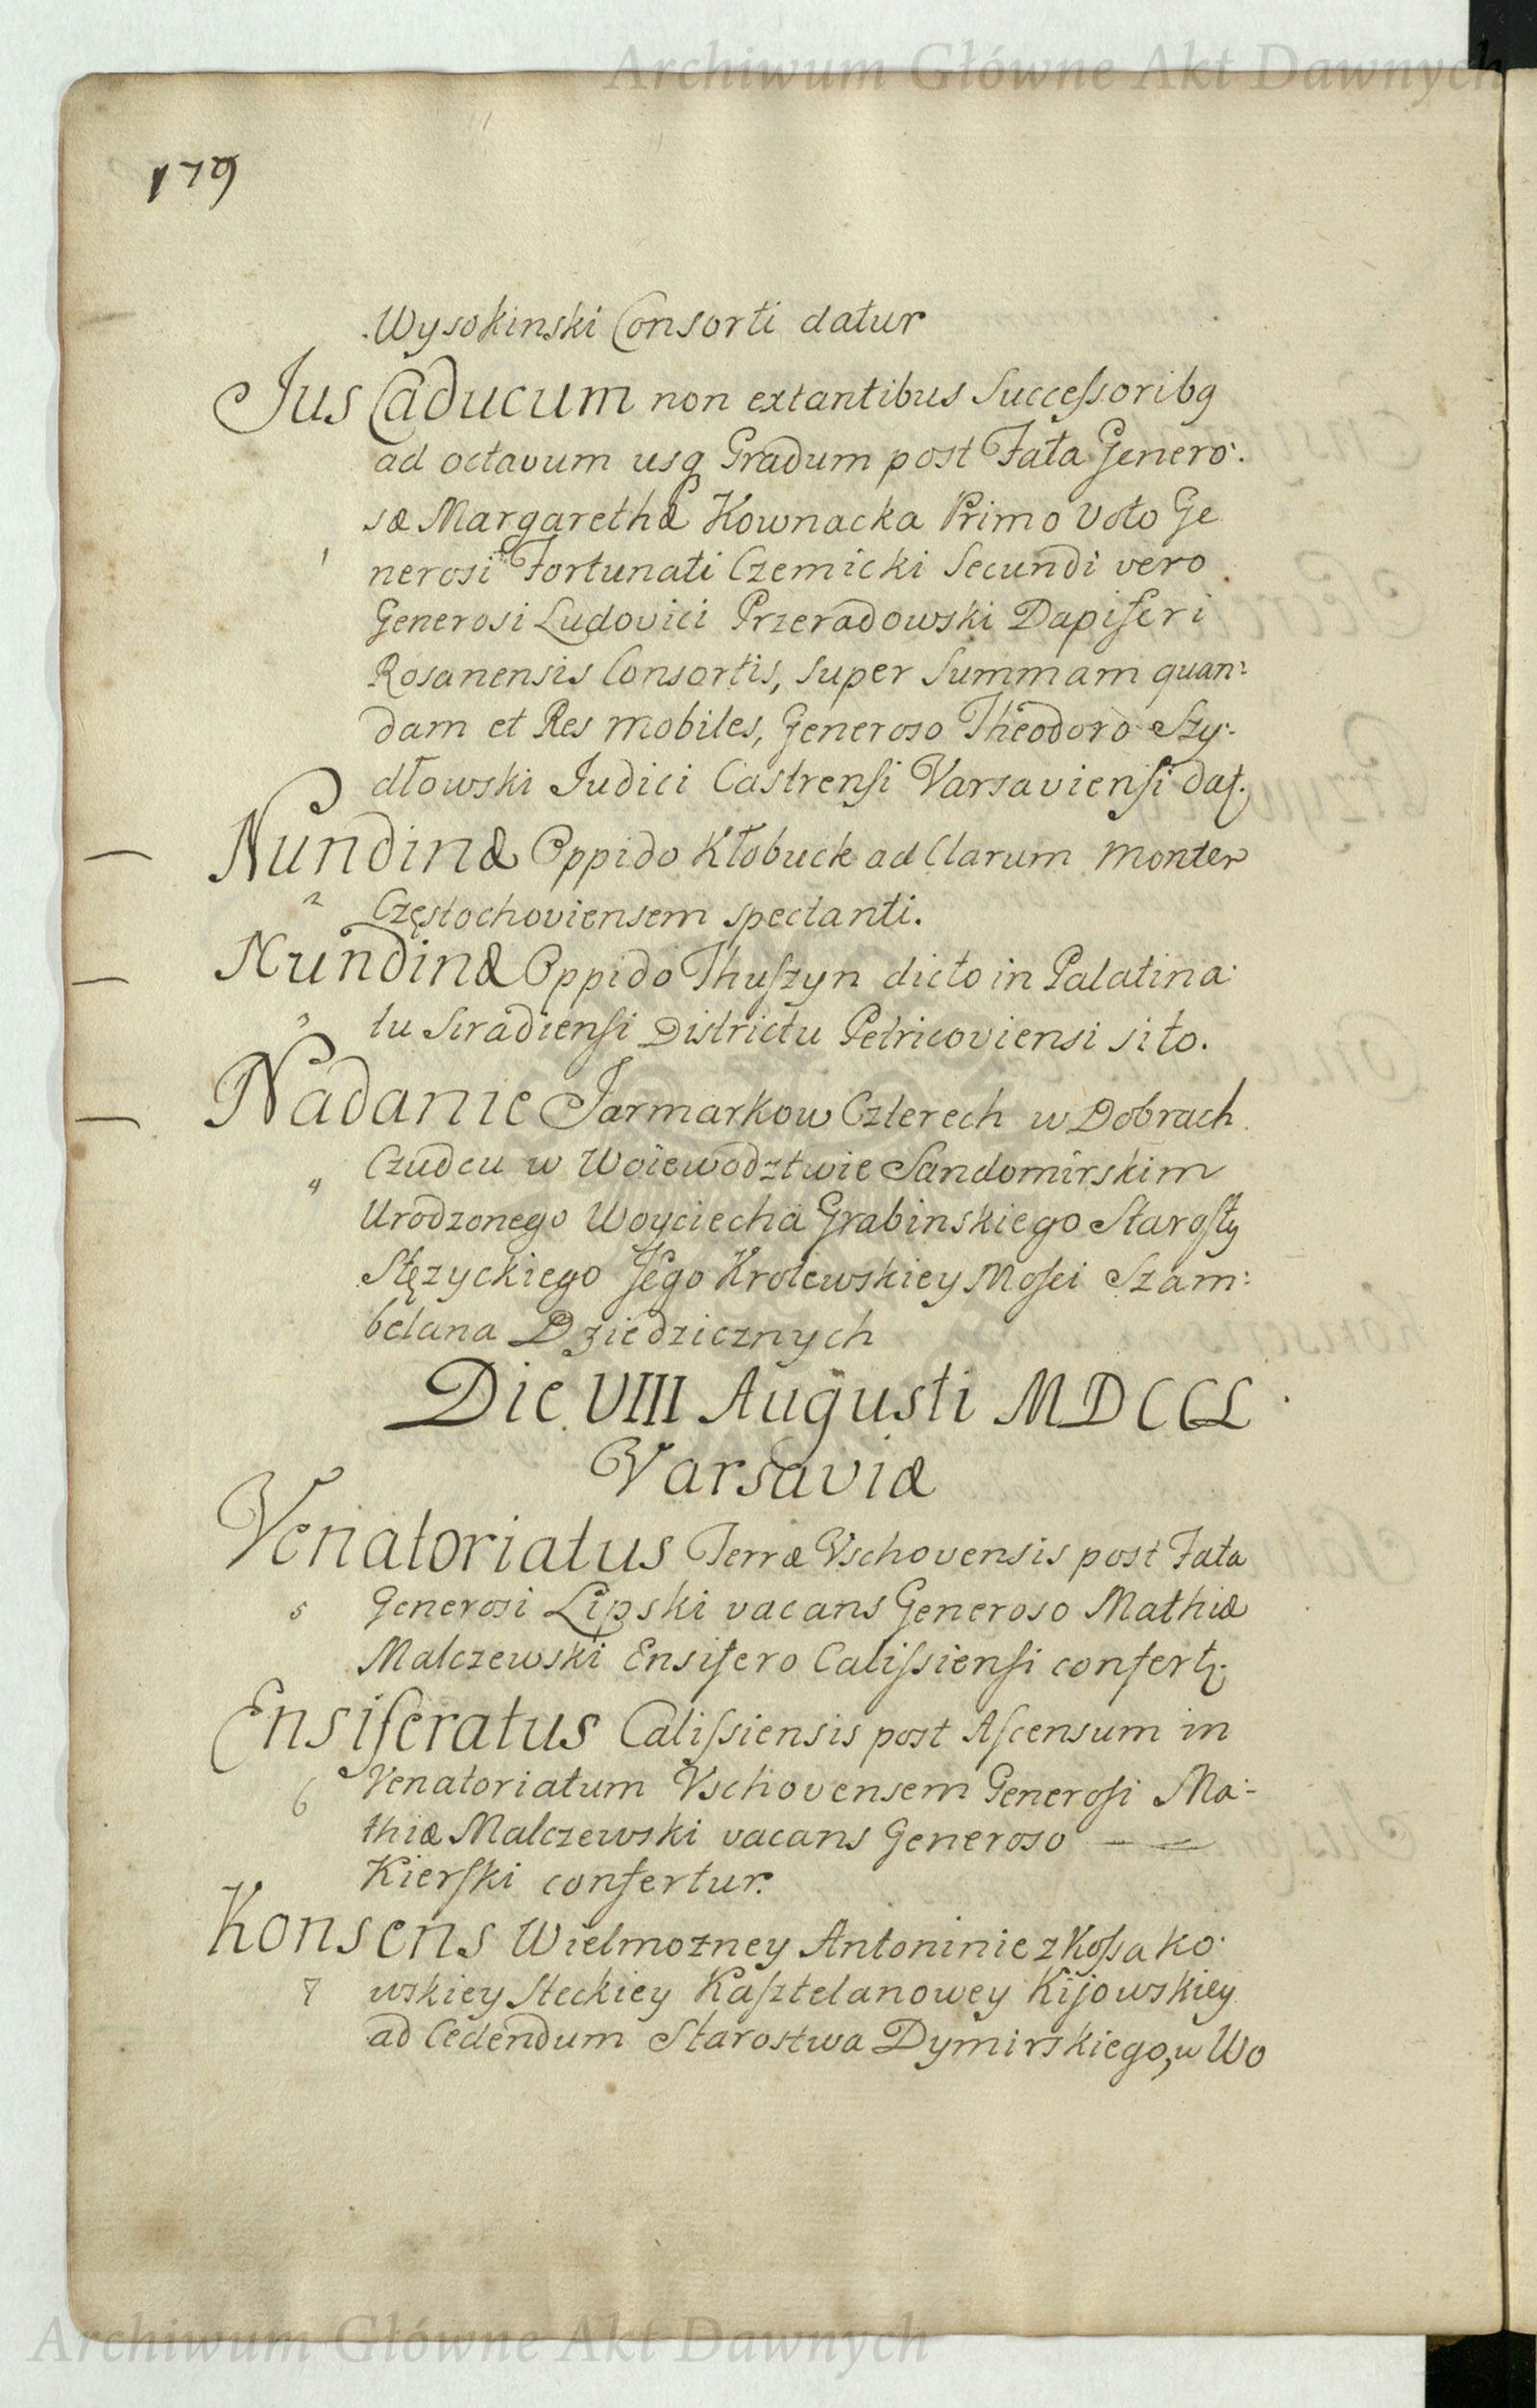 Archiwum Główne Akt Dawnych
179
Wysokinski Consorti datur
Jus Caducum non extantibus Successoribq
ad octavum usq Gradum post Fata Genero:
sæ Margarethæ Kownacka Primo Voto Ge
1 nerosi Fortunati Czernicki Secundi vero
Generosi Ludovici Przeradowski Dapiferi
Rosanensis Consortis, super Summam quan:
dam et Res mobiles, Generoso Theodoro Szy:
dłowski Judici Castrensi Varsaviensi dat.
Nundinæ Oppido Kłobuck ad Clarum Montem
2 Częstochoviensem spectanti.
Nundinæ Oppido Thuszyn dicto in Palatina:
3 tu Siradiensi Districtu Petricoviensi sito.
Nadanie Jarmarkow Czterech w Dobrach
4 Czudcu w Woiewodztwie Sandomirskim
Urodzonego Woyciecha Grabinskiego Starosty
Stęzyckiego Jego Krolewskiey Mosci Szam:
belana Dziedzicznych
Die VIII Augusti MDCCL
Varsaviæ
Venatoriatus Terræ Vschovensis post Fata
5 Generosi Lipski vacans Generoso Mathiæ
Malczewski Ensifero Calissiensi confert.
Ensiferatus Calissiensis post Ascensum in
6 Venatoriatum Vschovensem Generosi Ma:
thiæ Malczewski vacans Generoso —
Kierski confertur.
Konsens Wielmozney Antoninie z Kossako:
7 wskiey Steckiey Kasztelanowey Kijowskiey
ad Cedendum Starostwa Dymirskiego, w Wo
Archiwum Główne Akt Dawnych